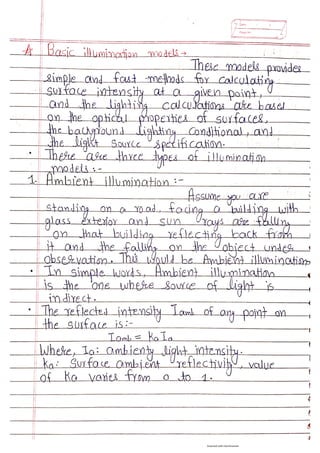 A Basic illumination models →
These models provides
simple and fast methods for calculating
surface intensity at a given point,
and the lighting calculations are based
on the optical properties of surfaces,
the background lighting conditional, and
the light source specification.
• There are three types of illumination
models :-
1. Ambient illumination :-
Assume you are
standing on a road, facing a building with
glass exterior and sun rays are falling
on that building reflecting back from
it and the falling on the object under
observation. This would be Ambient illumination
• In simple words, Ambient illumination
is the one where source of light is
indirect.
• The reflected intensity Iamb of any point on
the surface is:-
Iamb = Ka Ia
Where, Ia: ambienty light intensity.
Ka: Surface ambient reflectivity, value
of Ka varies from 0 to 1.